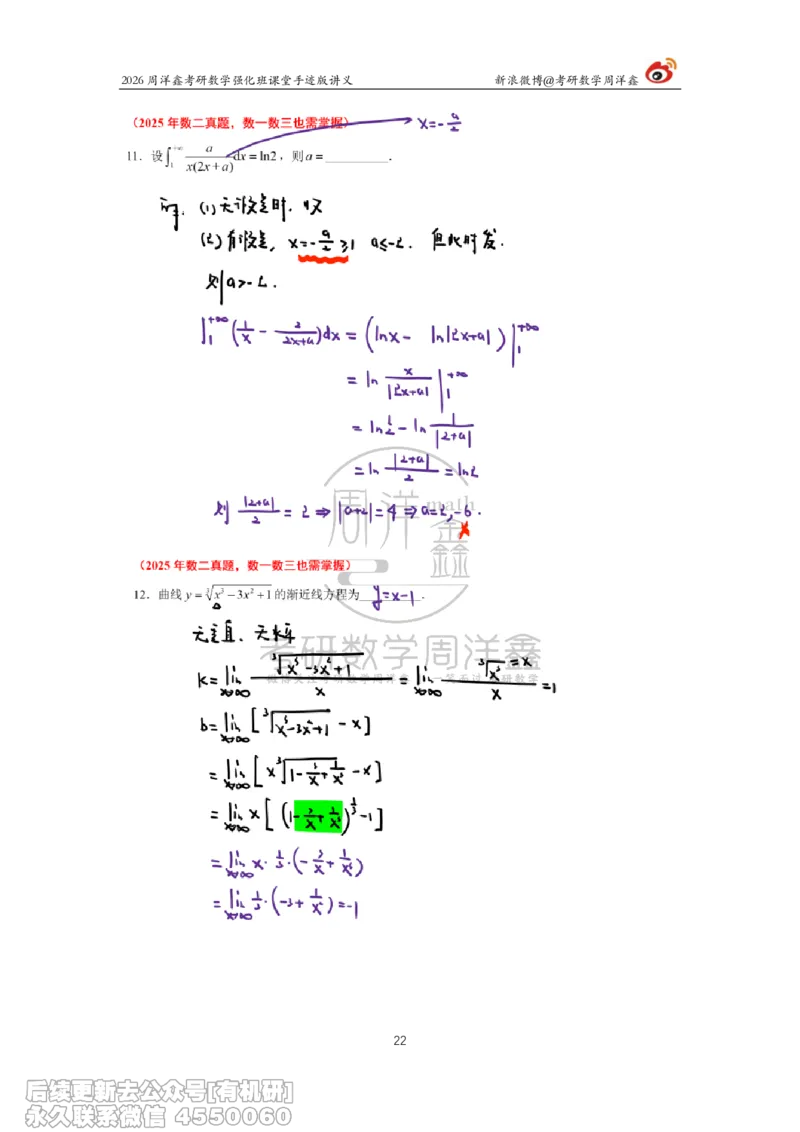 2026 周洋鑫考研数学强化班课堂手迹版讲义 新浪微博@考研数学周洋鑫
(2025 年数二真题，数一数三也需掌握) x=-a/2
11．设∫₁^{+∞} a/(x(2x+a)) dx = ln2，则 a = ________．
(1) 无瑕点时，收
(2) 有瑕点，x=-a/2≥1 a≤-2．但此时发．
则a>-2．
∫₁^{+∞}(1/x - 2/(2x+a))dx = (lnx - ln|2x+a|)|₁^{+∞}
= ln x/|2x+a| |₁^{+∞}
= ln 1/2 - ln 1/|2+a|
= ln |2+a|/2 = ln2
则 |2+a|/2 = 2 ⇒ |a+2|=4 ⇒ a=2,-6． ×
周洋鑫 math
(2025 年数二真题，数一数三也需掌握)
12．曲线 y = ∛(x³-3x²+1) 的渐近线方程为 y=x-1．
无垂直、无水平
考研数学周洋鑫
k=lim_{x→∞} ∛(x³-3x²+1)/x = lim_{x→∞} ∛(x³)/x =1 =x
b=lim_{x→∞}[∛(x³-3x²+1) - x]
=lim_{x→∞}[x∛(1-3/x+1/x³) - x]
=lim_{x→∞} x[(1-3/x+1/x³)^{1/3} -1]
=lim_{x→∞} x·1/3·(-3/x+1/x³)
=lim_{x→∞} 1/3·(-3+1/x²)=-1
22
后续更新去公众号[有机研]
永久联系微信 4550060